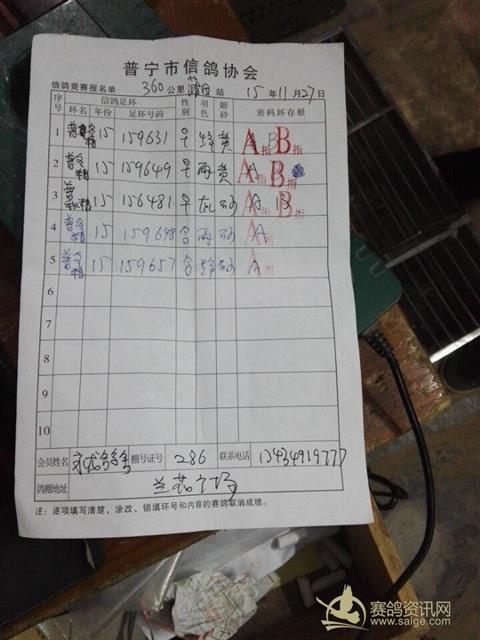 普宁市信鸽协会
信鸽竞赛报名单 360 公里 莆田 站 15 年 11 月 27 日
序号 信鸽足环 性别 羽色 眼砂 密码环存根
环名 年份 足环号码
1 普宁精 15 159631 黄 A指 B指
2 普宁精 15 159649 雨 黄 A指 B指
3 普宁精 15 156481 砂 A指 B指
4 普宁精 15 159698 雨 砂 A
5 普宁精 15 159657 砂 A
6
7
8
9
10
会员姓名 棚号证号 286 联系电话 13434919777
鸽棚地址 兰花广场
注：逐项填写清楚，涂改、错填环号和内容的赛鸽取消成绩。
赛鸽资讯网
www.saige.com